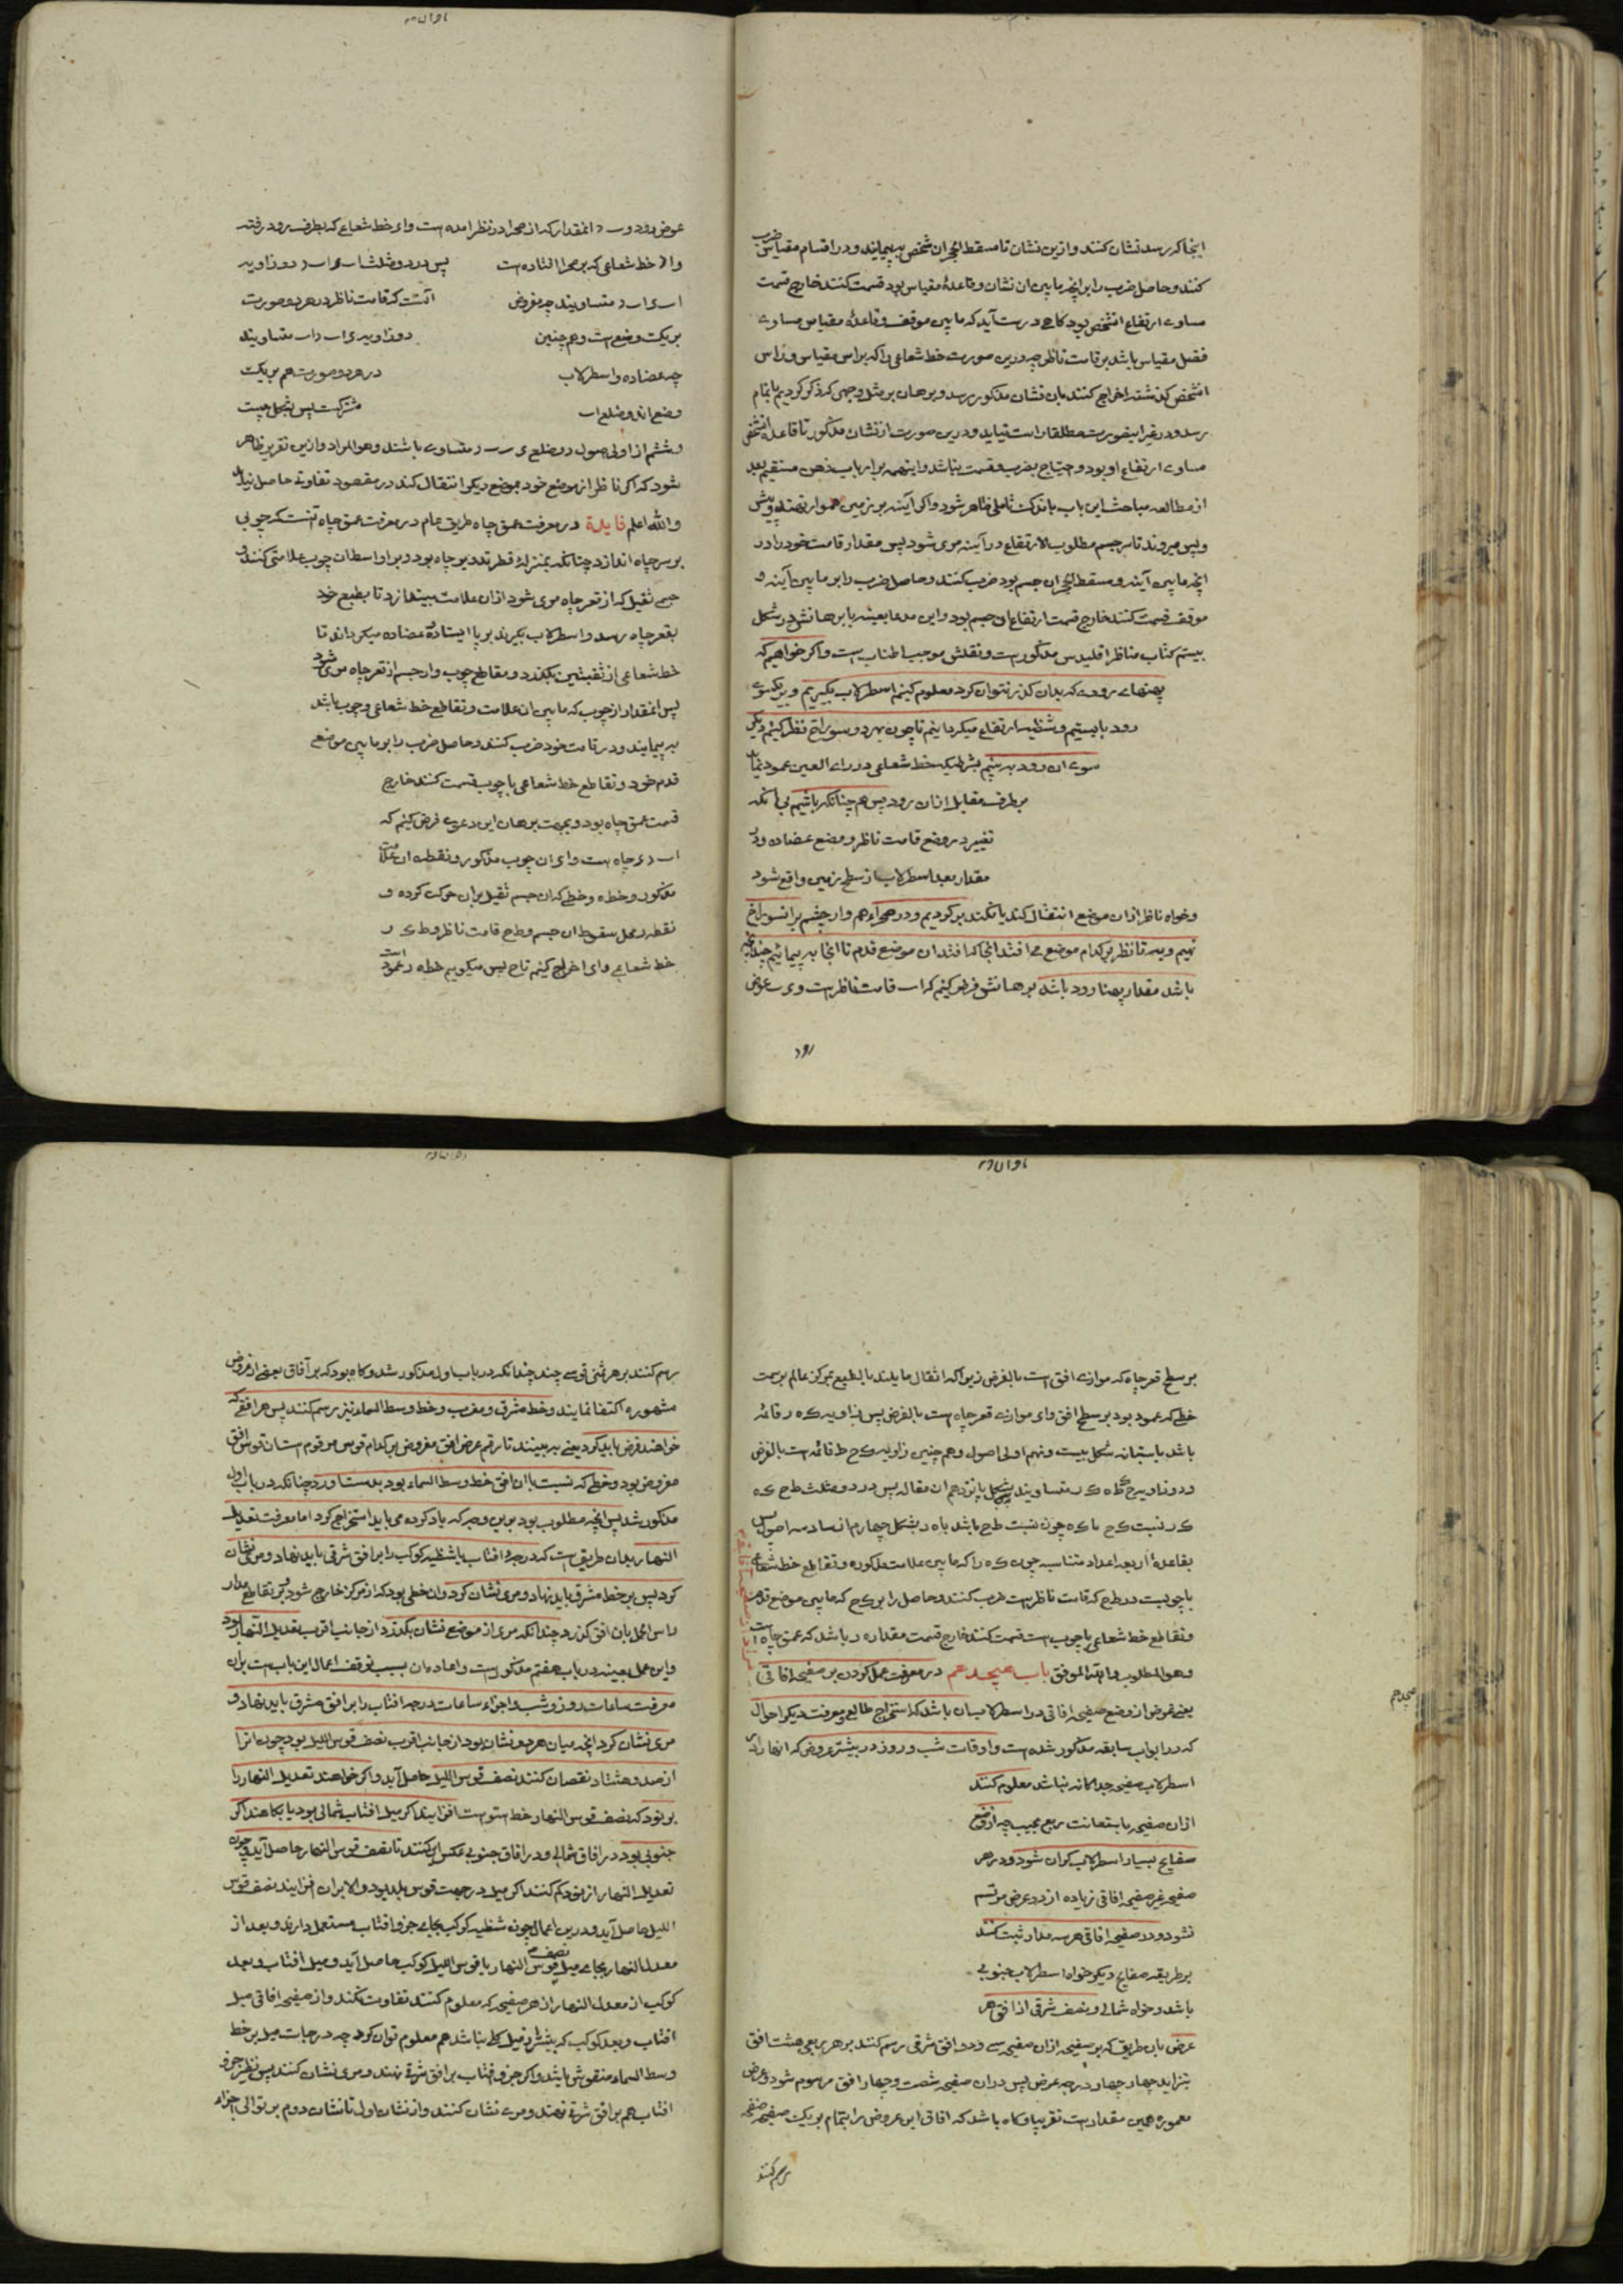 اینجا که رسد نشان کنند و ازین نشان تا مسقط الحجر ان شخص بپیمایند و در اقسام مقیاس ضرب
کنند و حاصل ضرب را بر انچه مابین ان نشان و قاعدهٔ مقیاس بود قسمت کنند خارج قسمت
مساوی ارتفاع انشخص بود کاهی درست آید که مابین موقف و قاعدهٔ مقیاس مساوی
فضل مقیاس باشد بر قامت ناظر چه درین صورت خط شعاعی را که براس مقیاس و راس
انشخص کذشته اخراج کنند بان نشان مذکور رسد و برهان بر مثل وجهی که ذکر کردیم بانمام
رسد و در غیر اینصورت مطلقا راست نیاید و درین صورت از نشان مذکور تا قاعده انشخص
مساوی ارتفاع او بود و احتیاج بضرب و قسمت نباشد و اینهمه بر ارباب ذهن مستقیم بعد
از مطالعه مباحث این باب باندک تاملی ظاهر شود و اکر آینه بر زمین هموار نهند و پیش
و پس میروند تا سر جسم مطلوب الارتفاع در آینه مری شود پس مقدار قامت خود را در
انچه مابین آینه و مسقط الحجر ان جسم بود ضرب کنند و حاصل ضرب را بر مابین آینه و
موقف قسمت کنند خارج قسمت ارتفاع ان جسم بود و این مدعا بعینه با برهانش در شکل
بیستم کتاب مناظر اقلیدس مذکور است و نقلش موجب اطناب است و اکر خواهیم که
پهنهای رودی که بدان کذر نتوان کرد معلوم کنیم اسطرلاب بکیریم و بر یکسوی
رود بایستیم و شظیه ارتفاع میکردانیم تا چون بهر دو سوراخ نظر کنیم دیکر
سوی ان رود به بینیم بشرطیکه خط شعاعی در رای العین عمود نماید
بر طرف مقابل ازان رود پس هم چنانکه باشیم بی انکه
تغییر در وضع قامت ناظر و وضع عضاده و در
مقدار بعد اسطرلاب از سطح زمین واقع شود
و خواه ناظر ازان موضع انتقال کند یا نکند بر کردیم و در صحراء هموار چشم بر انسوراخ
نهیم و ببینیم تا نظر بر کدام موضع می افتد انجا که افتد ان موضع قدم تا انجا به پیمائیم چندانکه
باشد مقدار پهنا رود باشد برهانش فرض کنیم که اب قامت ناظر است و ی ب عرض
رود
عرض رود و ب د انمقدار که از صحرا در نظر امده است و ا ی خط شعاعی که بطرف رود رفته
و ا د خط شعاعی که بر صحرا افتاده است پس در دو مثلث ا ب ی ا ب د دو زاویه
ا ب ی ا ب د متساویند چه مفروض انست که قامت ناظر در هر دو صورت
بر یک وضع است و هم چنین دو زاویه ی ا ب د ا ب متساویند
چه عضاده و اسطرلاب در هر دو صورت هم بر یک
وضع اند و ضلع ا ب مشترکست پس بشکل بیست
و ششم از اولی اصول دو ضلع ی ب ب د متساوی باشند و هو المراد و ازین تقریر ظاهر
شود که اکر ناظر از موضع خود بموضع دیکر انتقال کند در مقصود تفاوتی حاصل نیاید
و الله اعلم فایدة در معرفت عمق چاه طریق عام در معرفت عمق چاه آنست که چوبی
بر سر چاه اندازد چنانکه بمنزلهٔ قطر تدویر چاه بود و بر اواسط ان چوب علامتی کنند و
جسمی ثقیل که از قعر چاه مری شود ازان علامت بیندازد تا بطبع خود
بقعر چاه رسد و اسطرلاب بکیرند بر پا ایستاده و عضاده میکردانند تا
خط شعاعی از ثقبتین بکذرد و مقاطع چوب وار جسم از قعر چاه مری شود
پس انمقدار از چوب که مابین ان علامت و تقاطع خط شعاعی و چوب باشد
به پیمایند و در قامت خود ضرب کنند و حاصل ضرب را بر مابین موضع
قدم خود و تقاطع خط شعاعی با چوب قسمت کنند خارج
قسمت عمق چاه بود و بجهت برهان این دعوی فرض کنیم که
ا ب د ی چاه است و ا ی ان چوب مذکور و نقطه ه ان علامت
مذکور و خط ه و خطی که ان جسم ثقیل بران حرکت کرده و
نقطه ر محل سقوط ان جسم و ط ح قامت ناظر و ط ک ر
خط شعاعی و ا ی اخراج کنیم تا ح پس میکوییم خط ه ر عمود است
بر سطح قعر چاه که موازی افق است بالفرض زیرا که اثقال مایلند بالطبع بمرکز عالم بر سمت
خطی که عمود بود بر سطح افق و ا ی موازی قعر چاه است بالفرض پس زاویه ک ه ر قائمه
باشد باستبانه شکل بیست و نهم اولی اصول و هم چنین زاویه ک ح ط قائمه است بالفرض
و دو زاویه ح ک ط ه ک ر متساویند بشکل پانزدهم ان مقاله پس در دو مثلث ط ح ک ه
ک ر نسبت ک ح با ک ه چون نسبت ط ح باشد با ه ر بشکل چهارم از سادسه اصول پس
بقاعدهٔ اربعه اعداد متناسبه چون ک ه را که مابین علامت مذکوره و تقاطع خط شعاعی
با چوبست در ط ح که قامت ناظر است ضرب کنند و حاصل را بر ک ح که مابین موضع قدم
و تقاطع خط شعاعی با چوب است قسمت کنند خارج قسمت مقدار ه ر باشد که عمق چاه است
و هو المطلوب و الله الموفق باب هیجدهم در معرفت عمل کردن بر صفیحه افاقی
یعنی غرض از وضع صفیحه افاقی در اسطرلاب ان باشد که استخراج طالع و معرفت دیکر احوال
که در ابواب سابقه مذکور شده است و اوقات شب و روز در بیشتر عروض که انها را در
هیجدهم
اسطرلاب صفیحه جداکانه نباشد معلوم کنند
ازان صفیحه باستعانت ربع مجیب چه از وضع
صفایح بسیار اسطرلاب کران شود و در هر
صفیحه غیر صفیحه افاقی زیاده از دو عرض مرتسم
نشود و در صفیحه افاقی هر سه مدار ثبت کنند
بر طریقه صفایح دیکر خواه اسطرلاب جنوبی
باشد و خواه شمالی و نصف شرقی از افق هر
عرض بان طریق که بر صفیحه ازان صفیحه سی و دو افق شرقی رسم کنند بر هر ربعی هشت افق
بتزاید چهار چهار درجه عرض پس دران صفیحه شصت و چهار افق مرسوم شود و عرض
معموره همین مقدار است تقریبا و کاه باشد که افاق این عروض را بتمام بر یک صفیحه صفحه
رسم کنند
رسم کنند بر هر ثمنی قوسی چند چنانکه در باب اول مذکور شد و کاه بود که بر آفاق بعضی از عروض
مشهوره اکتفا نمایند و خط مشرق و مغرب و خط وسط السماء نیز رسم کنند پس هر افقی که
خواهند فرض باید کرد یعنی به بینند تا رقم عرض افق مفروض بر کدام قوس مرقوم است ان قوس افق
مفروض بود و خطی که نسبت با ان افق خط وسط السماء بود بدست اورد چنانکه در باب اول
مذکور شد پس انچه مطلوب بود برین وجه که یاد کرده می باید استخراج کرد اما معرفت تعدیل
النهار بدان طریق است که درجه افتاب یا شظیه کوکب را بر افق شرقی باید نهاد و مری نشان
کرد پس بر خط مشرق باید نهاد و مری نشان کرد و ان خطی بود که از مرکز خارج شود و بر تقاطع مدار
راس الحمل بان افق کذرد چندانکه مری از موضع نشان بکذرد از جانب اقرب تعدیل النهار بود
و این عمل بعینه در باب هفتم مذکور است و اعاده ان بسبب توقف اعمال این باب است بران
معرفت ساعات روز و شب و اجزاء ساعات درجه افتاب را بر افق مشرق باید نهاد و
مری نشان کرد انچه میان هر دو نشان بود از جانب اقرب نصف قوس اللیل بود چون انرا
از صد و هشتاد نقصان کنند نصف قوس اللیل حاصل آید و اکر خواهند تعدیل النهار را
بر نود که نصف قوس النهار خط استوا است افزایند اکر میل افتاب شمالی بود یا بکاهند اکر
جنوبی بود در افاق شمالی و در افاق جنوبی عکس این کنند تا نصف قوس النهار حاصل آید و چون
تعدیل النهار از نود کم کنند اکر میل در جهت قوس بلد بود و الا بران افزایند نصف قوس
اللیل حاصل آید و درین اعمال چون شظیه کوکب بجای جزو افتاب مستعمل دارند و بعد از
معدل النهار بجای میل نصف قوس النهار یا قوس اللیل کوکب حاصل آید و میل افتاب و بعد
کوکب از معدل النهار از هر صفیحه که معلوم کنند تفاوت نکند و از صفیحه افاقی میل
افتاب و بعد کوکب که بیشتر از میل کلی نباشد هم معلوم توان کرد چه درجات میل بر خط
وسط السماء منقوش باشد و اکر جزو افتاب بر افق شرقی نهند و مری نشان کنند پس نظیر جزو
افتاب هم بر افق شرقی نهند و مری نشان کنند و از نشان اول تا نشان دوم بر توالی اجزاء